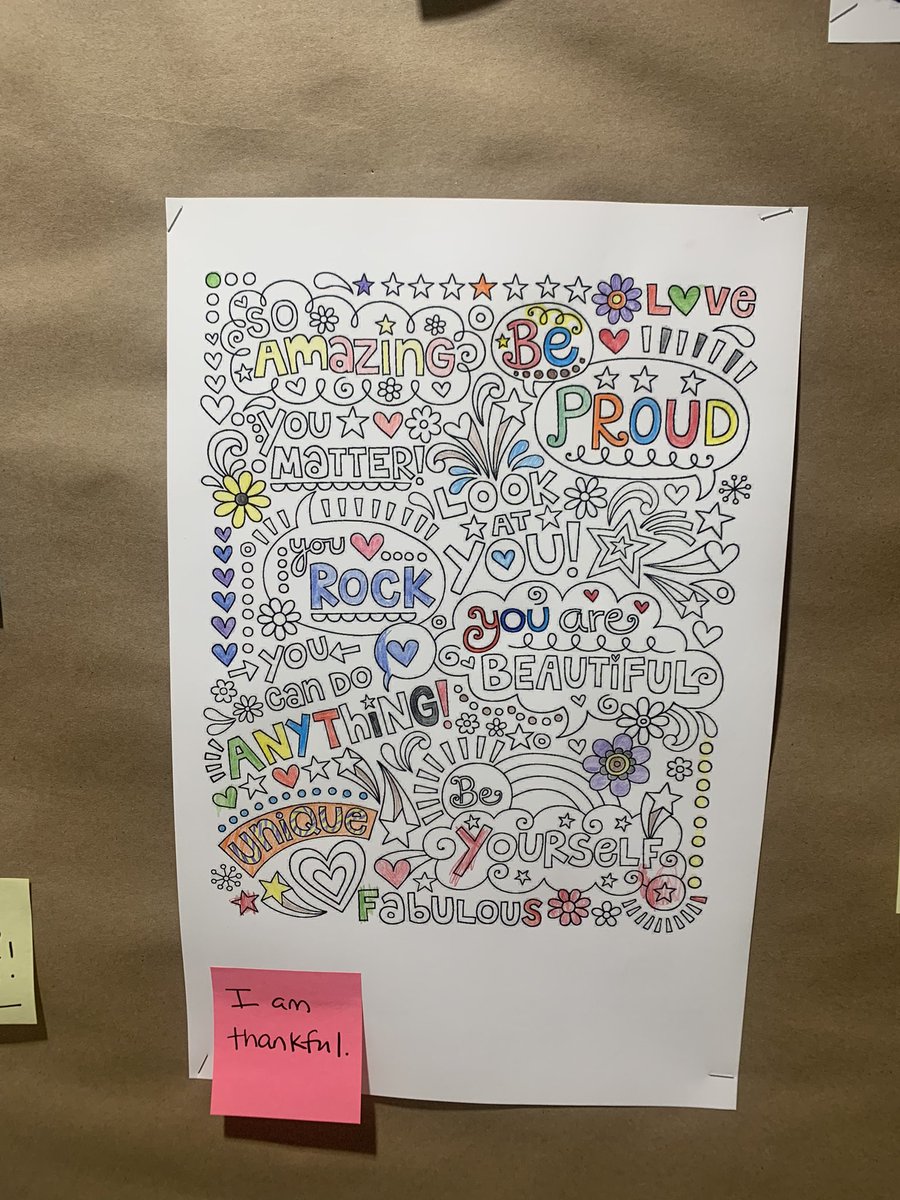 SO
AMaZiNG
Be
LOVe
PROUD
YOU
MATTER!
LOOK
AT
YOU!
you
ROCK
you are
BEAUTIFUL
YOU
CAN DO
ANYThiNG!
Be
YOURSELF
UNIQUE
FabULOUS
I am
thankful.